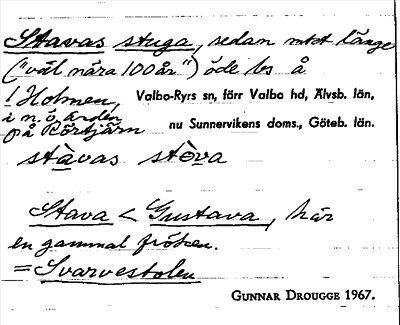 Stavas stuga, sedan mtct länge
("väl nära 100 år") öde bs å
! Holmen, Valbo-Ryrs sn, förr Valbo hd, Älvsb. län,
i n. ö. ärden
på Rörtjärn nu Sunnervikens doms., Göteb. län.
stàvas stòva
Stava < Gustava, här
en gammal fröken.
= Svarvestolen
GUNNAR DROUGGE 1967.